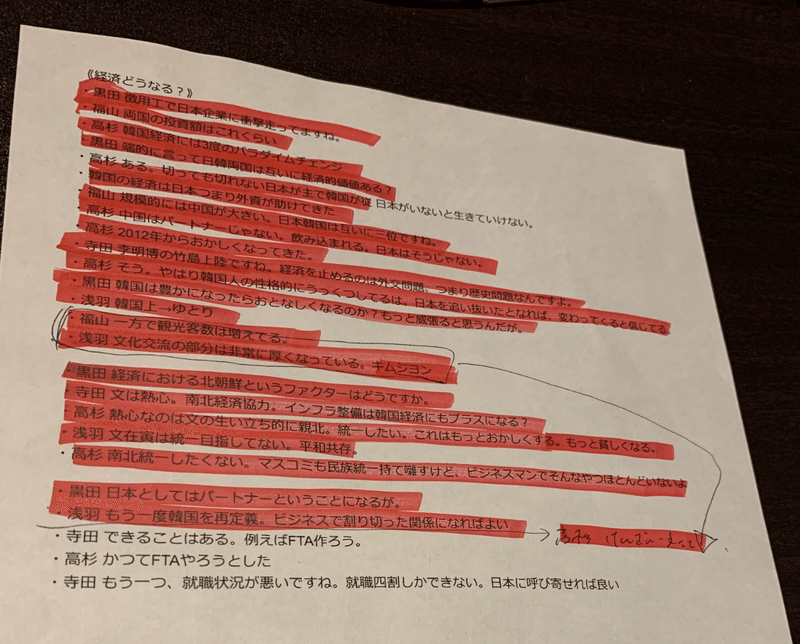 《経済どうなる？》
・黒田 徴用工で日本企業に衝撃走ってますね。
・福山 両国の投資額はこれくらい
・高杉 韓国経済には3度のパラダイムチェンジ
・黒田 端的に言って日韓両国は互いに経済的価値ある？
・高杉 ある。切っても切れない日本が主で韓国が従 日本がいないと生きていけない。
・韓国の経済は日本つまり外資が助けてきた
・福山 規模的には中国が大きい。日本韓国は互いに三位ですね。
・高杉 中国はパートナーじゃない。飲み込まれる。日本はそうじゃない。
・高杉 2012年からおかしくなってきた。
・寺田 李明博の竹島上陸ですね。経済を止めるのは外交問題、つまり歴史問題なんですよ。
・高杉 そう。やはり韓国人の性格的にうっくつしてるは。日本を追い抜いたとなれば、変わってくると信じてる
・黒田 韓国は豊かになったらおとなしくなるのか？もっと威張ると思うんだが。
・浅羽 韓国上→ゆとり
・福山 一方で観光客数は増えてる。
・浅羽 文化交流の部分は非常に厚くなっている。キムジヨン
・黒田 経済における北朝鮮というファクターはどうですか。
・寺田 文は熱心。南北経済協力。インフラ整備は韓国経済にもプラスになる？
・高杉 熱心なのは文の生い立ち的に親北。統一したい。これはもっとおかしくする。もっと貧しくなる。
・浅羽 文在寅は統一目指してない。平和共存。
・高杉 南北統一したくない。マスコミも民族統一持て囃すけど、ビジネスマンでそんなやつほとんどいないよ
・黒田 日本としてはパートナーということになるが。
・浅羽 もう一度韓国を再定義。ビジネスで割り切った関係になればよい
高杉
・寺田 できることはある。例えばFTA作ろう。
・高杉 かつてFTAやろうとした
・寺田 もう一つ、就職状況が悪いですね。就職四割しかできない。日本に呼び寄せれば良い